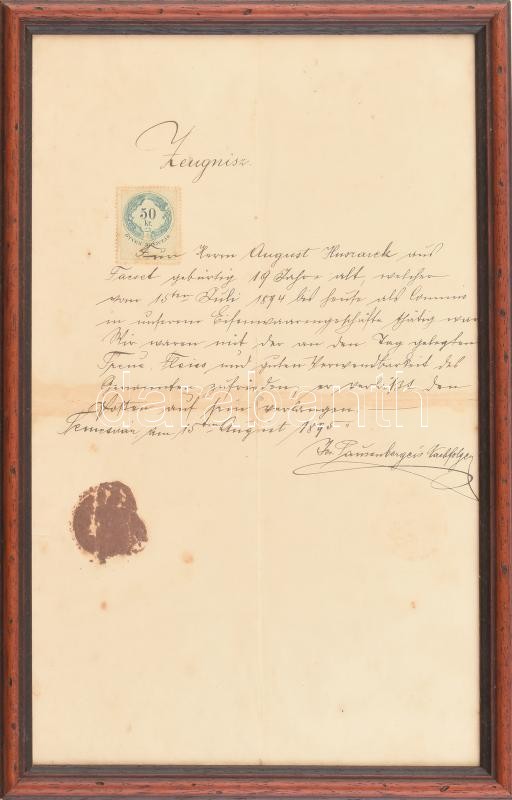 Zeugnisz.
50
Kr.
Für Herrn August Huszarek aus
Facset gebürtig 19 Jahre alt, welcher
vom 15ten Juli 1894 bis heute als Commis
in unserem Eisenwaarengeschäfte thätig war
Wir waren mit der an den Tag gelegten
Treue, Fleiss und guten Verwendbarkeit des
Genannten zufrieden, er verlässt den
Posten auf sein verlangen
Temesvar am 15ten August 1895
darabanth
Nachfolger